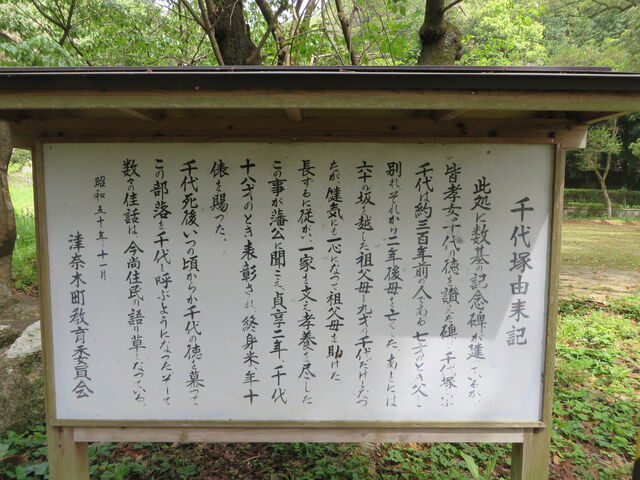 千代塚由来記
此処に数基の記念碑が建っているが、
皆孝女千代の徳を讃えた碑で千代塚と呼ぶ
千代は約三百年前の人である。七才のとき父に
別れそれから二年後母も亡くした。あとには
六十の坂を越した祖父母と九才の千代だけとなっ
たが健気にも一心になって祖父母を助けた
長ずるに従がい一家を支え孝養を尽した
この事が藩公に聞こえ、貞享二年、千代
十八才のとき表彰され、終身米、年十
俵を賜った。
千代死後、いつの頃からか千代の徳を慕って
この部落を千代と呼ぶようになったそして
数々の佳話は、今尚住民の語り草となっている。
昭和五十年十一月
津奈木町教育委員会